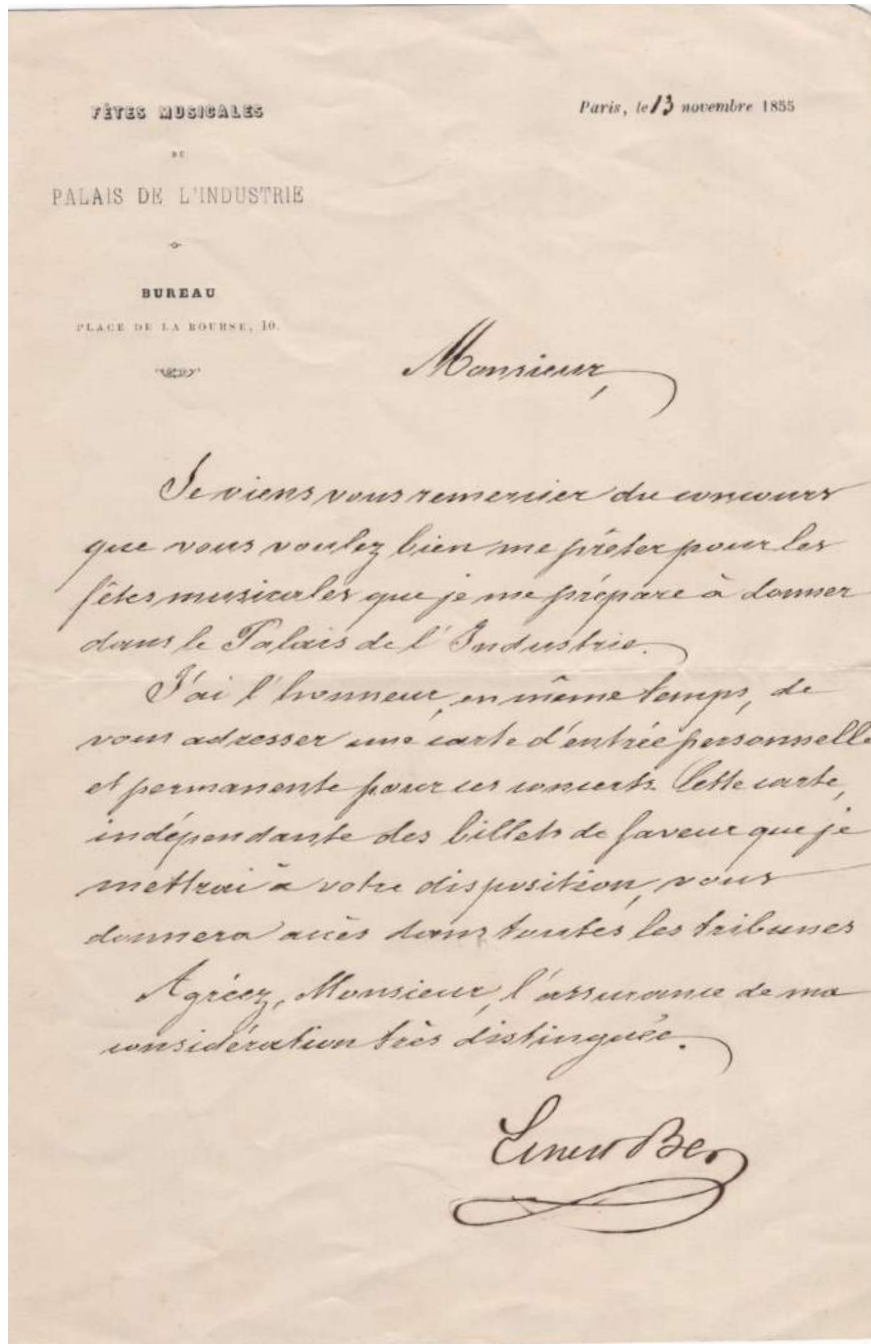 FÊTES MUSICALES
DU
PALAIS DE L'INDUSTRIE
BUREAU
PLACE DE LA BOURSE, 10.
Paris, le 13 novembre 1855
Monsieur,
Je viens vous remercier du concours
que vous voulez bien me prêter pour les
fêtes musicales que je me prépare à donner
dans le Palais de l'Industrie.
J'ai l'honneur, en même temps, de
vous adresser une carte d'entrée personnelle
et permanente pour ces concerts. Cette carte,
indépendante des billets de faveur que je
mettrai à votre disposition, vous
donnera accès dans toutes les tribunes
Agréez, Monsieur, l'assurance de ma
considération très distinguée.
Ernest Ber